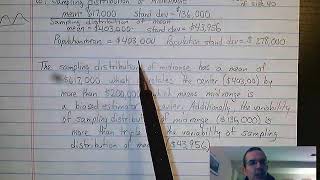 Sampling distribution of
of size 40
mean = $617,000 stand dev = $136,000
Sampling distribution of mean
mean = $403,000 stand dev = $43,956
Population mean = $403,000 Population stand dev = $278,000
The sampling distribution of midrange has a mean of
$617,000 which the center ($403,000) by
more than $200,000 which means midrange is
a biased estimator Additionally, the variability
of sampling distribution of midrange ($136,000) is
more than triple the variability of sampling
distribution of mean $43,956)